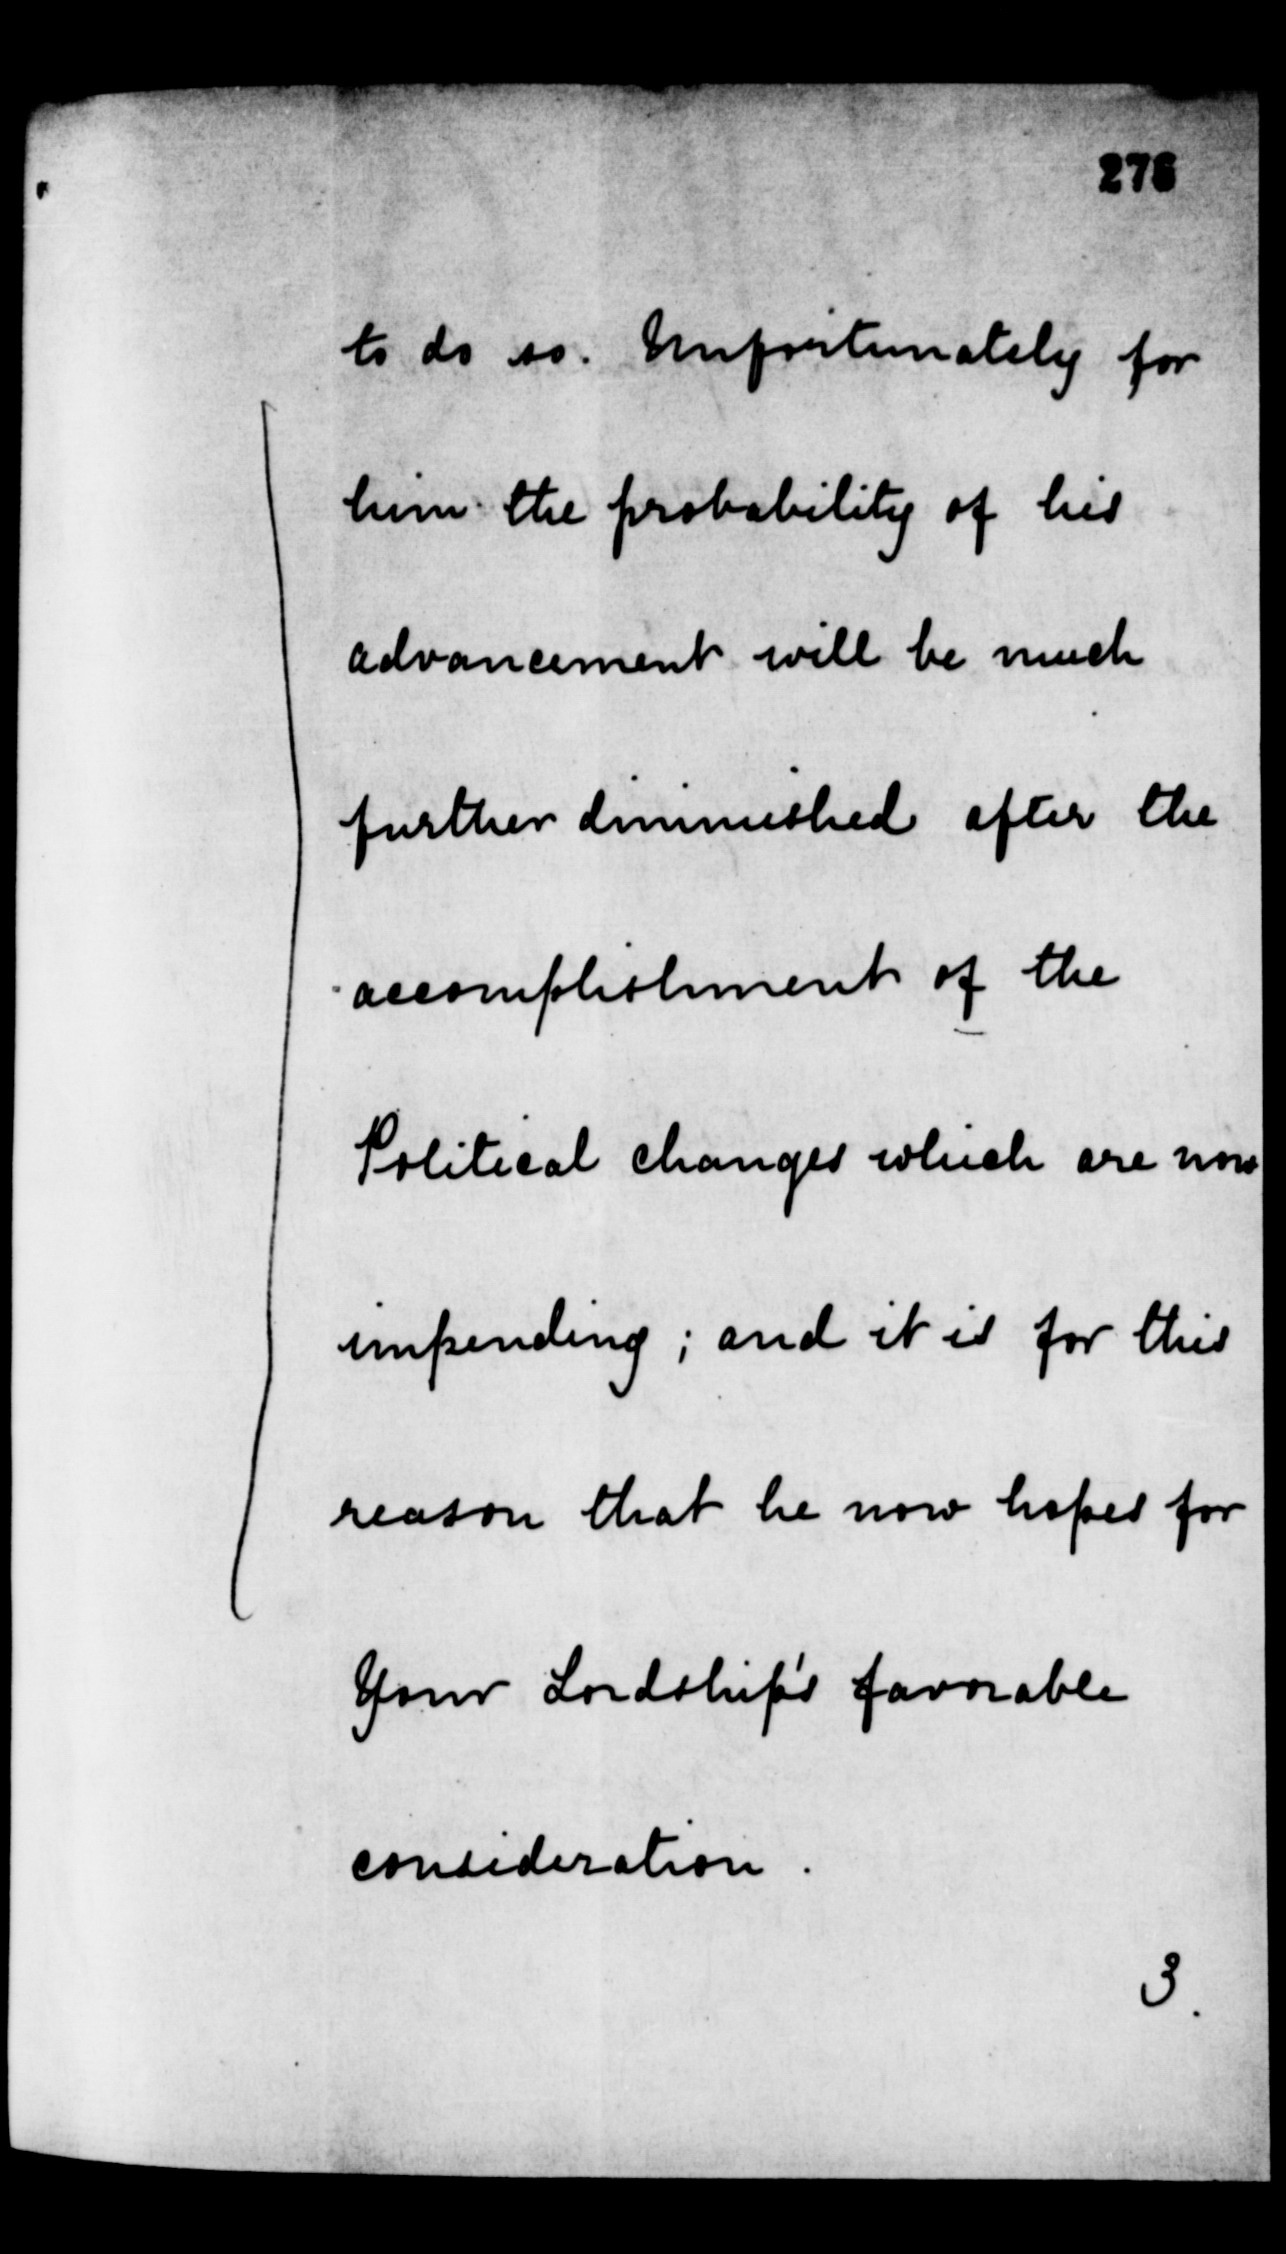 276
to do so. Unfortunately for
him the probability of his
advancement will be much
further diminished after the
accomplishment of the
Political changes which are now
impending; and it is for this
reason that he now hopes for
Your Lordship's favorable
consideration.
3.